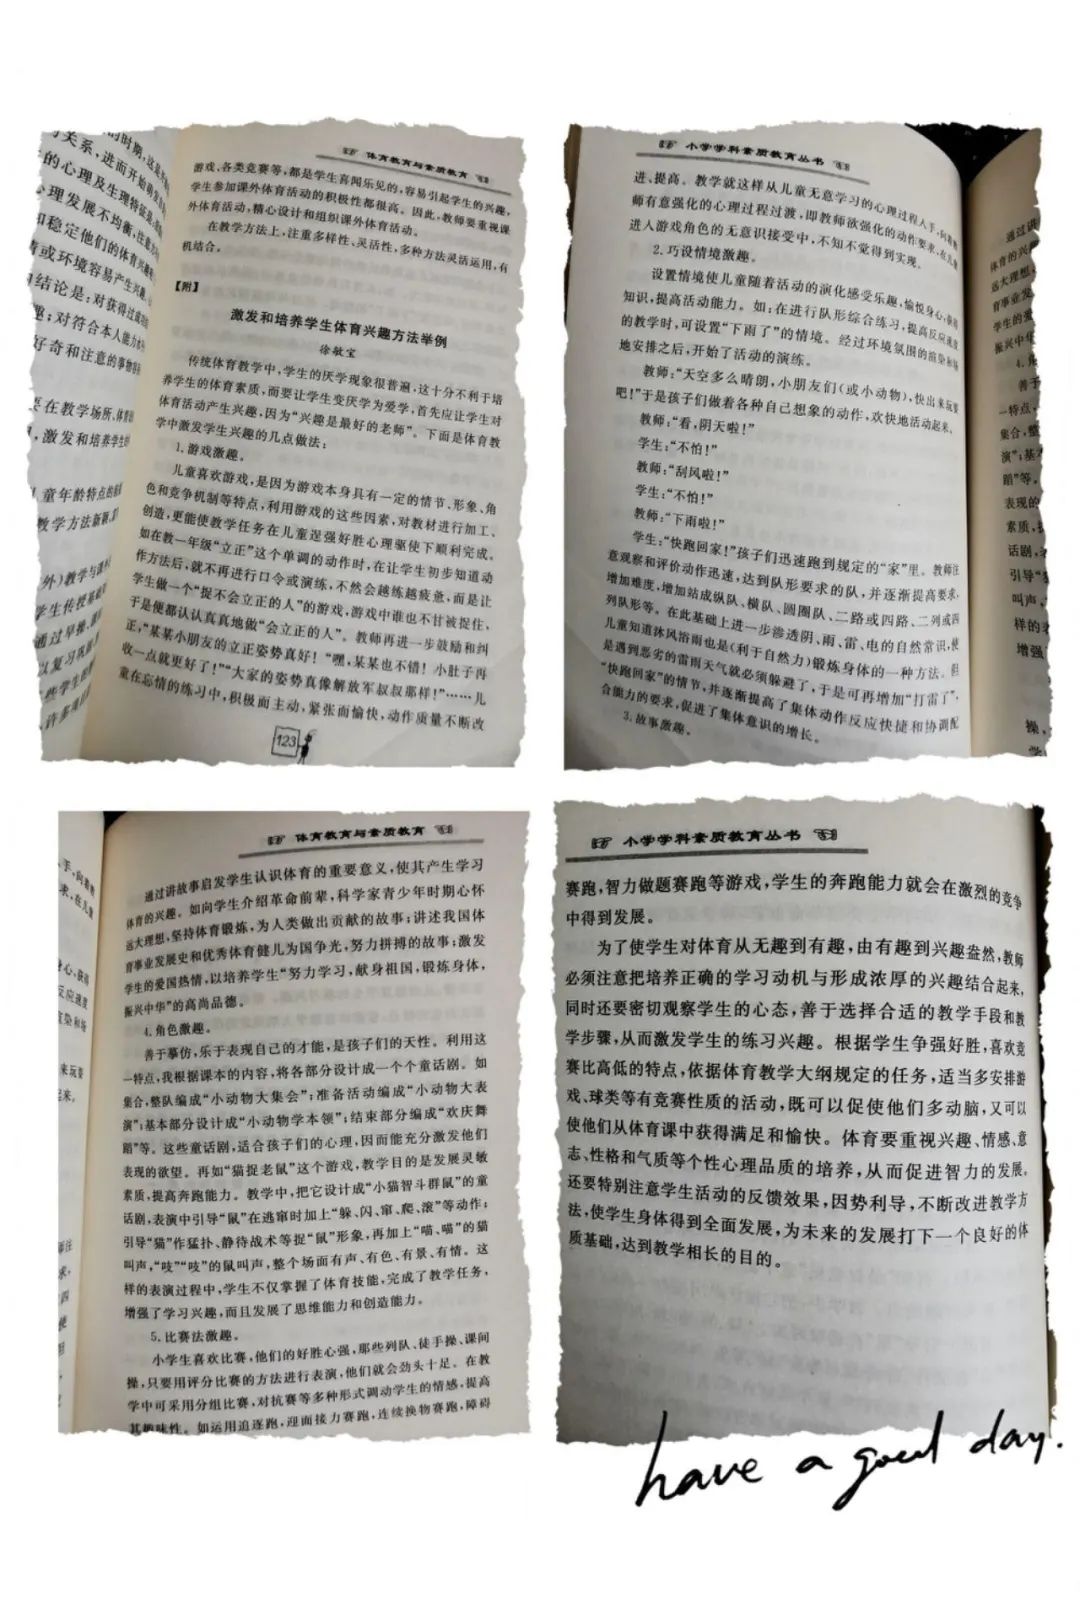 体育教育与素质教育
游戏、各类竞赛等,都是学生喜闻乐见的,容易引起学生的兴趣,
学生参加课外体育活动的积极性都很高。因此,教师要重视课
外体育活动,精心设计和组织课外体育活动。
在教学方法上,注重多样性、灵活性,多种方法灵活运用,有
机结合。
【附】
激发和培养学生体育兴趣方法举例
徐敏宝
传统体育教学中,学生的厌学现象很普遍,这十分不利于培
养学生的体育素质,而要让学生变厌学为爱学,首先应让学生对
体育活动产生兴趣,因为“兴趣是最好的老师”。下面是体育教
学中激发学生兴趣的几点做法:
1.游戏激趣。
儿童喜欢游戏,是因为游戏本身具有一定的情节、形象、角
色和竞争机制等特点,利用游戏的这些因素,对教材进行加工、
创造,更能使教学任务在儿童逞强好胜心理驱使下顺利完成。
如在教一年级“立正”这个单调的动作时,在让学生初步知道动
作方法后,就不再进行口令或演练,不然会越练越疲惫,而是让
学生做一个“捉不会立正的人”的游戏,游戏中谁也不甘被捉住,
于是便都认认真真地做“会立正的人”。教师再进一步鼓励和纠
正,“某某小朋友的立正姿势真好!”“嘿,某某也不错!小肚子再
收一点就更好了!”“大家的姿势真像解放军叔叔那样!”……儿
童在忘情的练习中,积极而主动,紧张而愉快,动作质量不断改
123
小学学科素质教育丛书
进、提高。教学就这样从儿童无意学习的心理过程入手,向着教
师有意强化的心理过程过渡,即教师欲强化的动作要求,在儿童
进入游戏角色的无意识接受中,不知不觉得到实现。
2.巧设情境激趣。
设置情境使儿童随着活动的演化感受乐趣,愉悦身心,获得
知识,提高活动能力。如:在进行队形综合练习,提高反应速度
的教学时,可设置“下雨了”的情境。经过环境氛围的渲染和场
地安排之后,开始了活动的演练。
教师:“天空多么晴朗,小朋友们(或小动物),快出来玩耍
吧!”于是孩子们做着各种自己想象的动作,欢快地活动起来。
教师:“看,阴天啦!”
学生:“不怕!”
教师:“刮风啦!”
学生:“不怕!”
教师:“下雨啦!”
学生:“快跑回家!”孩子们迅速跑到规定的“家”里。教师注
意观察和评价动作迅速,达到队形要求的队,并逐渐提高要求,
增加难度,增加站成纵队、横队、圆圈队、二路或四路、二列或四
列队形等。在此基础上进一步渗透阴、雨、雷、电的自然常识,使
儿童知道沐风浴雨也是(利于自然力)锻炼身体的一种方法。但
是遇到恶劣的雷雨天气就必须躲避了,于是可再增加“打雷了”,
“快跑回家”的情节,并逐渐提高了集体动作反应快捷和协调配
合能力的要求,促进了集体意识的增长。
3.故事激趣。
体育教育与素质教育
通过讲故事启发学生认识体育的重要意义,使其产生学习
体育的兴趣。如向学生介绍革命前辈,科学家青少年时期心怀
远大理想,坚持体育锻炼,为人类做出贡献的故事;讲述我国体
育事业发展史和优秀体育健儿为国争光,努力拼搏的故事;激发
学生的爱国热情,以培养学生“努力学习,献身祖国,锻炼身体,
振兴中华”的高尚品德。
4.角色激趣。
善于摹仿,乐于表现自己的才能,是孩子们的天性。利用这
一特点,我根据课本的内容,将各部分设计成一个个童话剧。如
集合,整队编成“小动物大集会”;准备活动编成“小动物大表
演”;基本部分设计成“小动物学本领”;结束部分编成“欢庆舞
蹈”等。这些童话剧,适合孩子们的心理,因而能充分激发他们
表现的欲望。再如“猫捉老鼠”这个游戏,教学目的是发展灵敏
素质,提高奔跑能力。教学中,把它设计成“小猫智斗群鼠”的童
话剧,表演中引导“鼠”在逃窜时加上“躲、闪、窜、爬、滚”等动作;
引导“猫”作猛扑、静待战术等捉“鼠”形象,再加上“喵、喵”的猫
叫声,“吱”“吱”的鼠叫声,整个场面有声、有色、有景、有情。这
样的表演过程中,学生不仅掌握了体育技能,完成了教学任务,
增强了学习兴趣,而且发展了思维能力和创造能力。
5.比赛法激趣。
小学生喜欢比赛,他们的好胜心强,那些列队、徒手操、课间
操,只要用评分比赛的方法进行表演,他们就会劲头十足。在教
学中可采用分组比赛,对抗赛等多种形式调动学生的情感,提高
其趣味性。如运用追逐跑,迎面接力赛跑,连续换物赛跑,障碍
小学学科素质教育丛书
赛跑,智力做题赛跑等游戏,学生的奔跑能力就会在激烈的竞争
中得到发展。
为了使学生对体育从无趣到有趣,由有趣到兴趣盎然,教师
必须注意把培养正确的学习动机与形成浓厚的兴趣结合起来,
同时还要密切观察学生的心态,善于选择合适的教学手段和教
学步骤,从而激发学生的练习兴趣。根据学生争强好胜,喜欢竞
赛比高低的特点,依据体育教学大纲规定的任务,适当多安排游
戏、球类等有竞赛性质的活动,既可以促使他们多动脑,又可以
使他们从体育课中获得满足和愉快。体育要重视兴趣、情感、意
志、性格和气质等个性心理品质的培养,从而促进智力的发展,
还要特别注意学生活动的反馈效果,因势利导,不断改进教学方
法,使学生身体得到全面发展,为未来的发展打下一个良好的体
质基础,达到教学相长的目的。
have a good day.